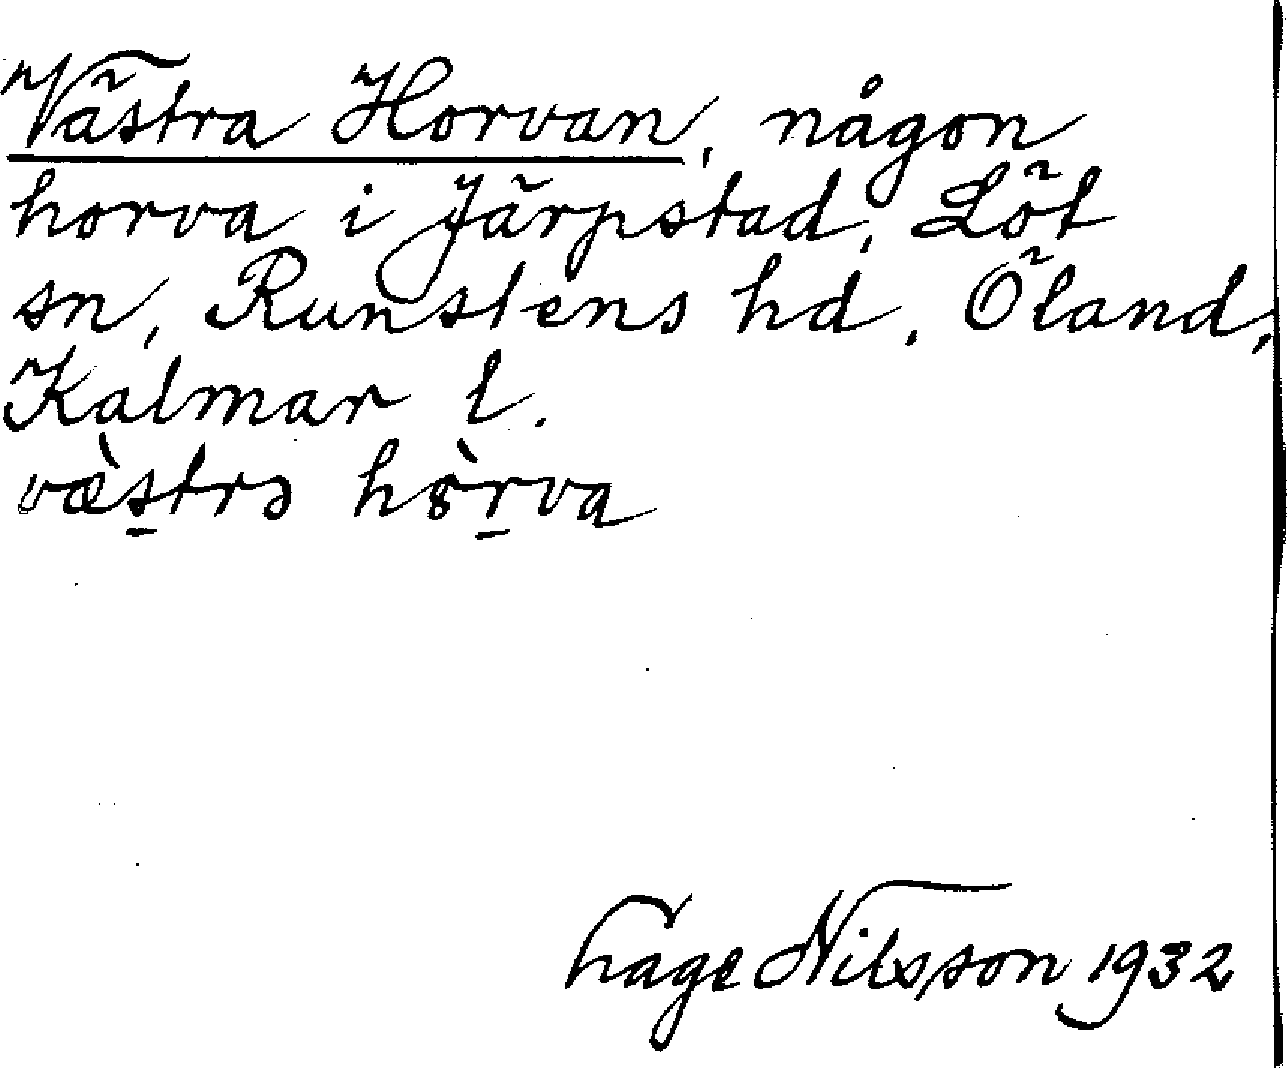 Västra Horvan, någon
horva i Järpstad, Löt
sn, Runstens hd, Öland,
Kalmar l.
væ̀s̠trə hòr̠va
Hage Nilsson 1932